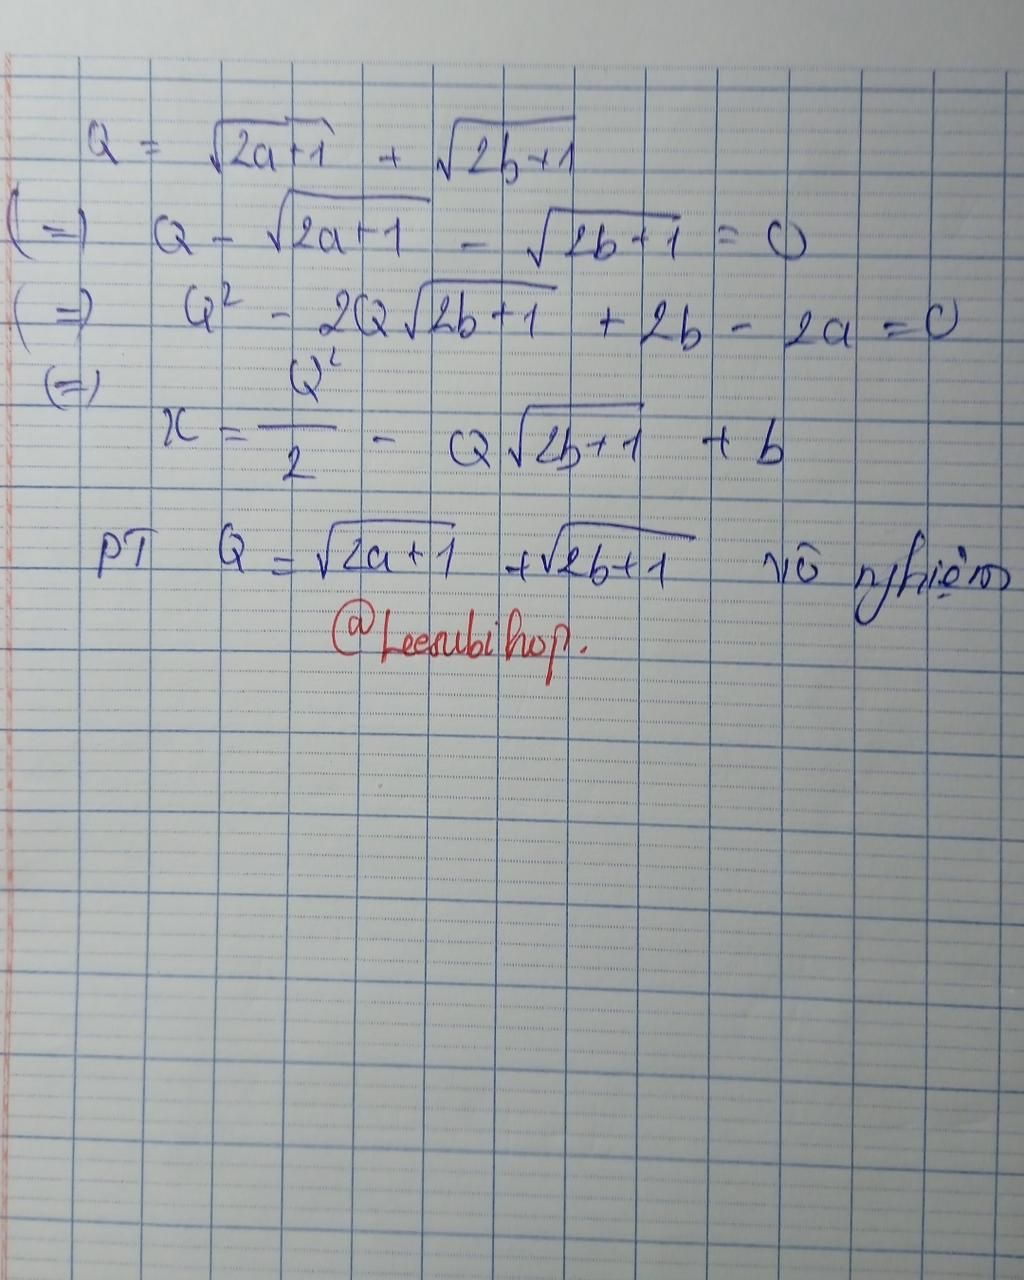 Q = √(2a+1) + √(2b+1)
(=) Q - √(2a+1) - √(2b+1) = 0
(=) Q² - 2Q√(2b+1) + 2b - 2a = 0
(=) x = Q²/2 - Q√(2b+1) + b
PT Q = √(2a+1) + √(2b+1) vô nghiệm
@Leesubihop.